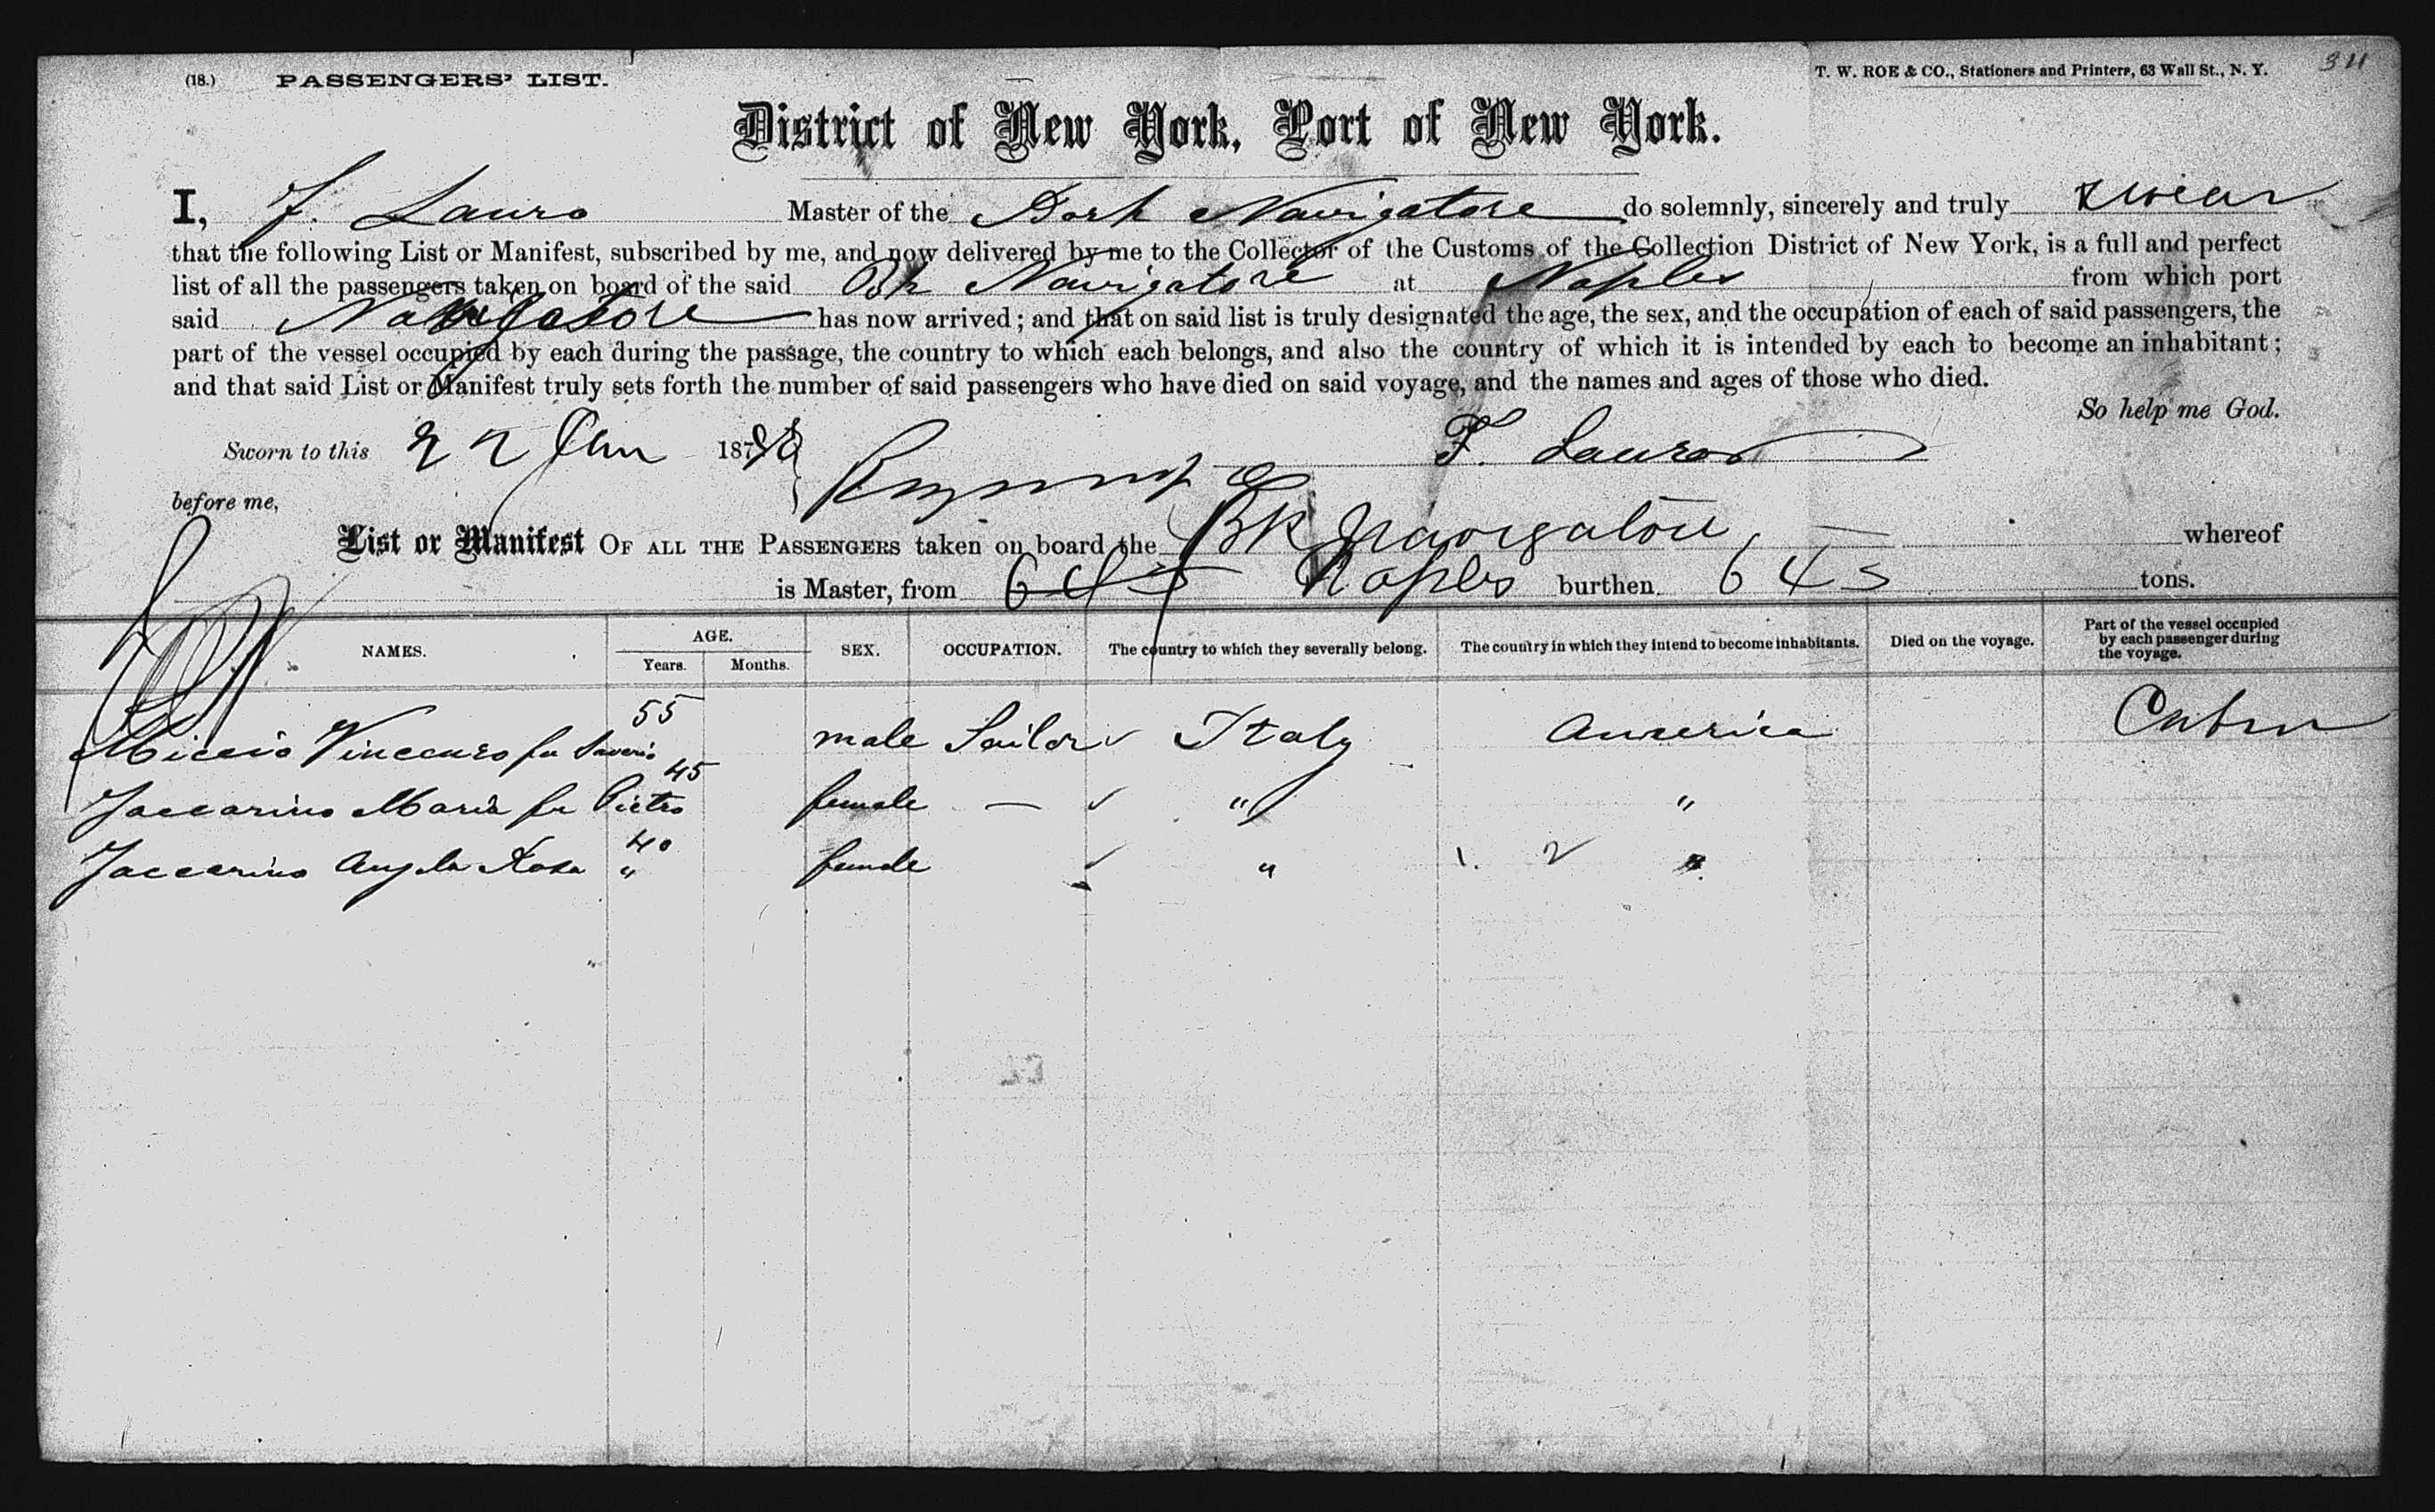 (18.) PASSENGERS' LIST. T. W. ROE & CO., Stationers and Printers, 63 Wall St., N. Y. 311
District of New York, Port of New York.
I, F. Lauro Master of the Bark Navigatore do solemnly, sincerely and truly swear
that the following List or Manifest, subscribed by me, and now delivered by me to the Collector of the Customs of the Collection District of New York, is a full and perfect
list of all the passengers taken on board of the said Bk Navigatore at Naples from which port
said Navigatore has now arrived; and that on said list is truly designated the age, the sex, and the occupation of each of said passengers, the
part of the vessel occupied by each during the passage, the country to which each belongs, and also the country of which it is intended by each to become an inhabitant;
and that said List or Manifest truly sets forth the number of said passengers who have died on said voyage, and the names and ages of those who died.
So help me God.
Sworn to this 22 187 F. Lauro
before me,
List or Manifest OF ALL THE PASSENGERS taken on board the Bk Navigatore whereof
is Master, from 645 Naples burthen 645 tons.
NAMES. AGE. Years. Months. SEX. OCCUPATION. The country to which they severally belong. The country in which they intend to become inhabitants. Died on the voyage. Part of the vessel occupied by each passenger during the voyage.
Miccio Vincenzo fu Saverio 55 male Sailor Italy America Cabin
Jaccarino Maria fu Pietro 45 female — " "
Jaccarino Angela Rosa " 40 female " "